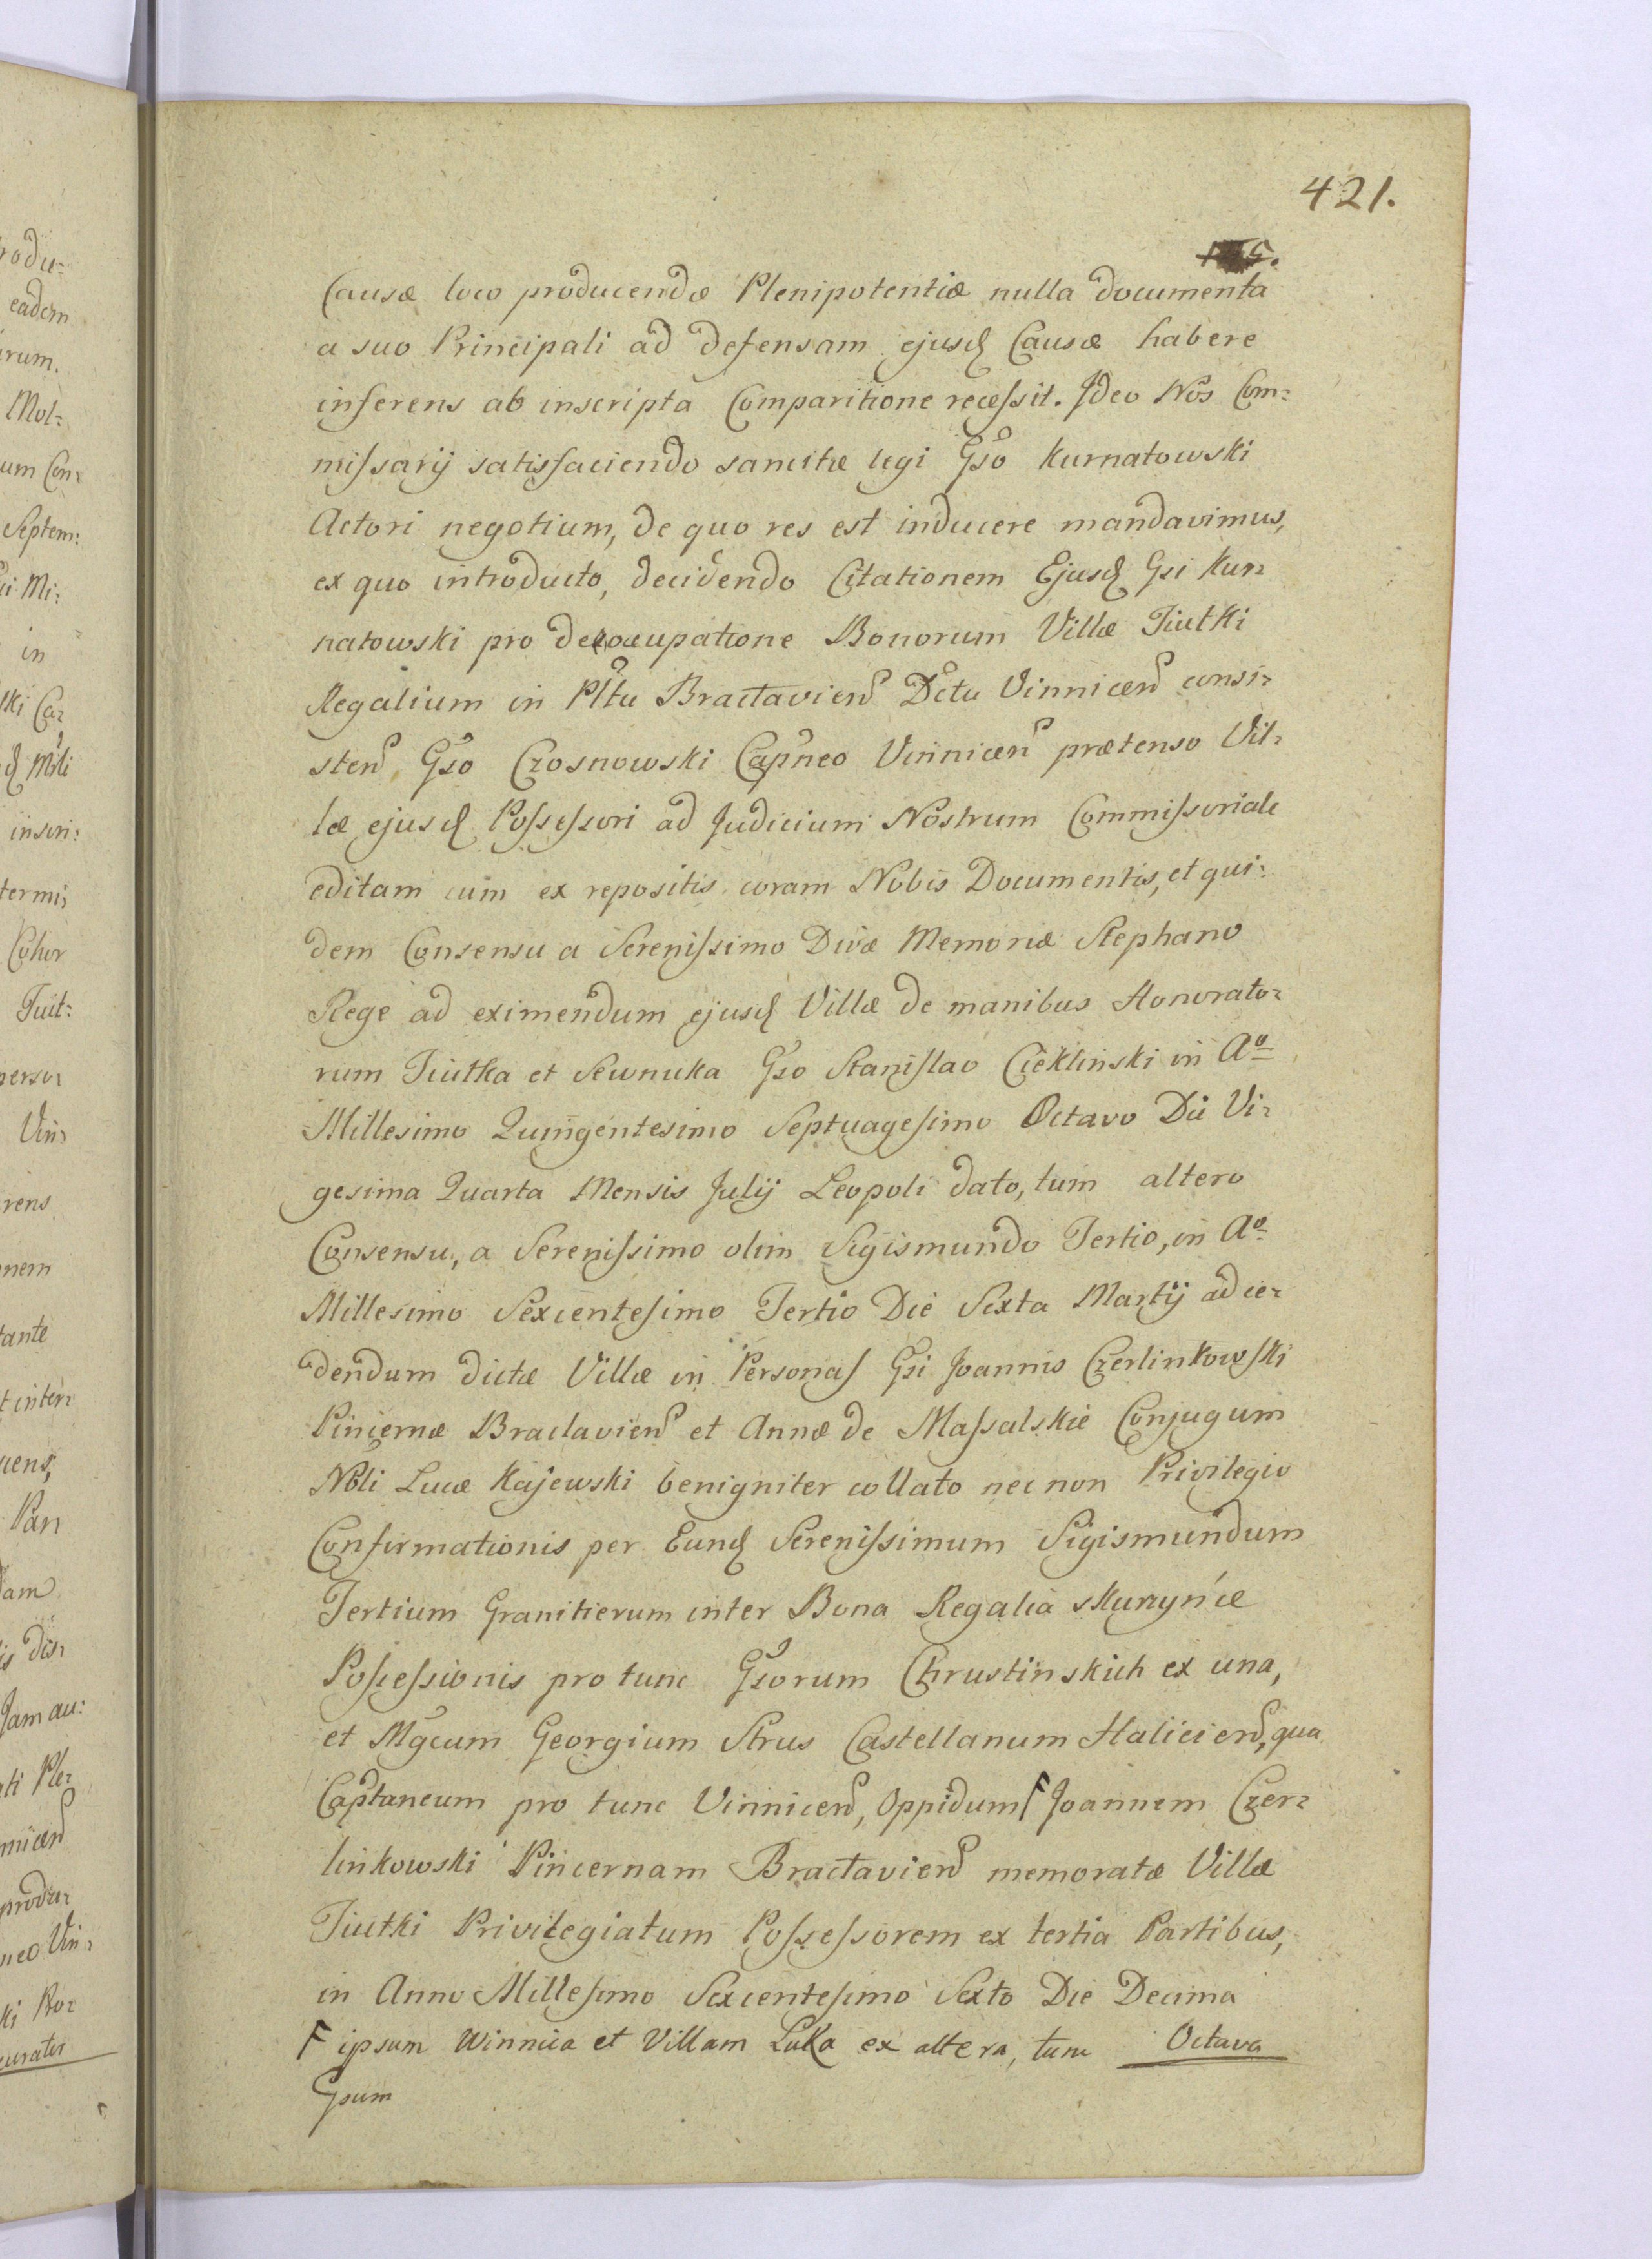 421.
Causæ loco producendæ Plenipotentiæ nulla documenta
a suo Principali ad defensam ejusd Causæ habere
inferens ab inscripta Comparitione recessit. Ideo Nos Com=
missarij satisfaciendo sancitæ legi Gso Kurnatowski
Actori negotium, de quo res est inducere mandavimus,
ex quo introducto, decidendo Citationem Ejusd Gsi Kur=
natowski pro deoccupatione Bonorum Villæ Tiutki
Regalium in Pltu Bractavien Dctu Vinnicen consi=
sten Gso Czosnowski Capneo Vinnicen prætenso Vil=
læ ejusd Possessori ad Judicium Nostrum Commissoriale
editam cum ex repositis coram Nobis Documentis, et qui=
dem Consensu a Serenissimo Divæ Memoriæ Stephano
Rege ad eximendum ejusd Villæ de manibus Honorato=
rum Tiutka et Sewnuka Gso Stanislao Ciekliński in Ao
Millesimo Quingentesimo Septuagesimo Octavo Die Vi=
gesima Quarta Mensis Julij Leopoli dato, tum altero
Consensu, a Serenissimo olim Sigismundo Tertio, in Ao
Millesimo Sexcentesimo Tertio Die Sexta Martij ad ce=
dendum dictæ Villæ in Personas Gsi Joannis Czerlinkowski
Pincernæ Braclavien et Annæ de Massalskie Conjugum
Nbli Lucæ Kajewski benigniter collato nec non Privilegio
Confirmationis per Eund Serenissimum Sigismundum
Tertium Granitierum inter Bona Regalia skurzyńce
Possessionis pro tunc Gsorum Chrustinskich ex una,
et Mgcum Georgium Strus Castellanum Halicien, qua
Captaneum pro tunc Vinnicen, Oppidum F Joannem Czer=
linkowski Pincernam Bractavien memoratæ Villæ
Tiutki Privilegiatum Possessorem ex tertia Partibus,
in Anno Millesimo Sexcentesimo Sexto Die Decima
F ipsum Winnica et Villam Luka ex altera, tum Octava
Gsum